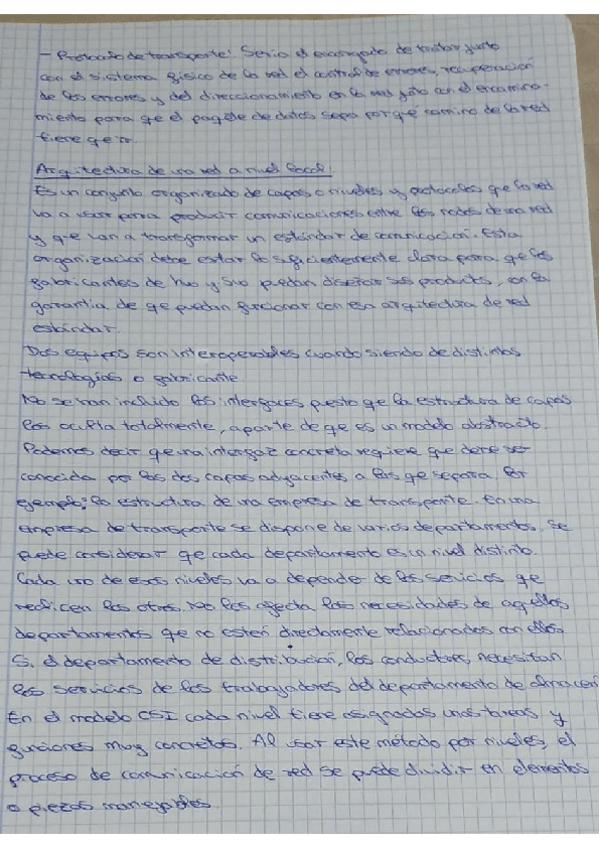 - Protocolo de transporte: Sería el encargado de tratar junto
con el sistema físico de la red el control de errores, recuperación
de los errores y del direccionamiento en la red junto con el encamina-
miento para que el paquete de datos sepa por qué camino de la red
tiene que ir.
Arquitectura de una red a nivel local:
Es un conjunto organizado de capas o niveles y protocolos que la red
va a usar para producir comunicaciones entre las redes de una red
y que van a transformar un estándar de comunicación. Esta
organización debe estar lo suficientemente clara para que los
fabricantes de hw y sw puedan diseñar sus products, con la
garantía de que puedan funcionar con esa arquitectura de red
estándar.
Dos equipos son interoperables cuando siendo de distintas
tecnologías o fabricante
No se han incluido las interfaces puesto que la estructura de capas
las oculta totalmente, aparte de que es un modelo abstracto.
Podemos decir que una interfaz concreta requiere que debe ser
conocida por las dos capas adyacentes a las que separa. Por
ejemplo: la estructura de una empresa de transporte. En una
empresa de transporte se dispone de varios departamentos. Se
puede considerar que cada departamento es un nivel distinto.
Cada uno de esos niveles va a depender de los servicios que
realicen los otros. No les afecta las necesidades de aquellos
departamentos que no estén directamente relacionados con ellos.
Si el departamento de distribución, los conductores, necesitan
los servicios de los trabajadores del departamento de almacén
En el modelo OSI cada nivel tiene asignadas unas tareas y
funciones muy concretas. Al usar este método por niveles, el
proceso de comunicación de red se puede dividir en elementos
o piezas manejables